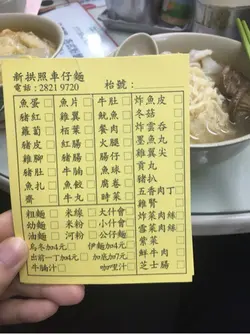 新拱照車仔麵
電話:2821 9720 枱號:
魚蛋 魚片 牛肚 炸魚皮
豬紅 雞翼 魷魚 冬菇
蘿蔔 栢葉 餐肉 炸雲吞
豬皮 紅腸 火腿 墨魚丸
雞腳 豬腸 腸仔 雞翼尖
豬肚 牛腩 魚球 貢丸
魚扎 魚餃 廣卷 豬扒
齋 牛丸 時菜 五香肉丁
雞腎
粗麵 米線 大什會 炸菜肉絲
幼麵 米粉 小什會 雪菜肉絲
油麵 河粉 公仔麵 紫菜
烏冬加4元 伊麵加4元 鮮牛肉
出前一丁加4元 加底加7元 芝士腸
牛腩汁 咖喱汁